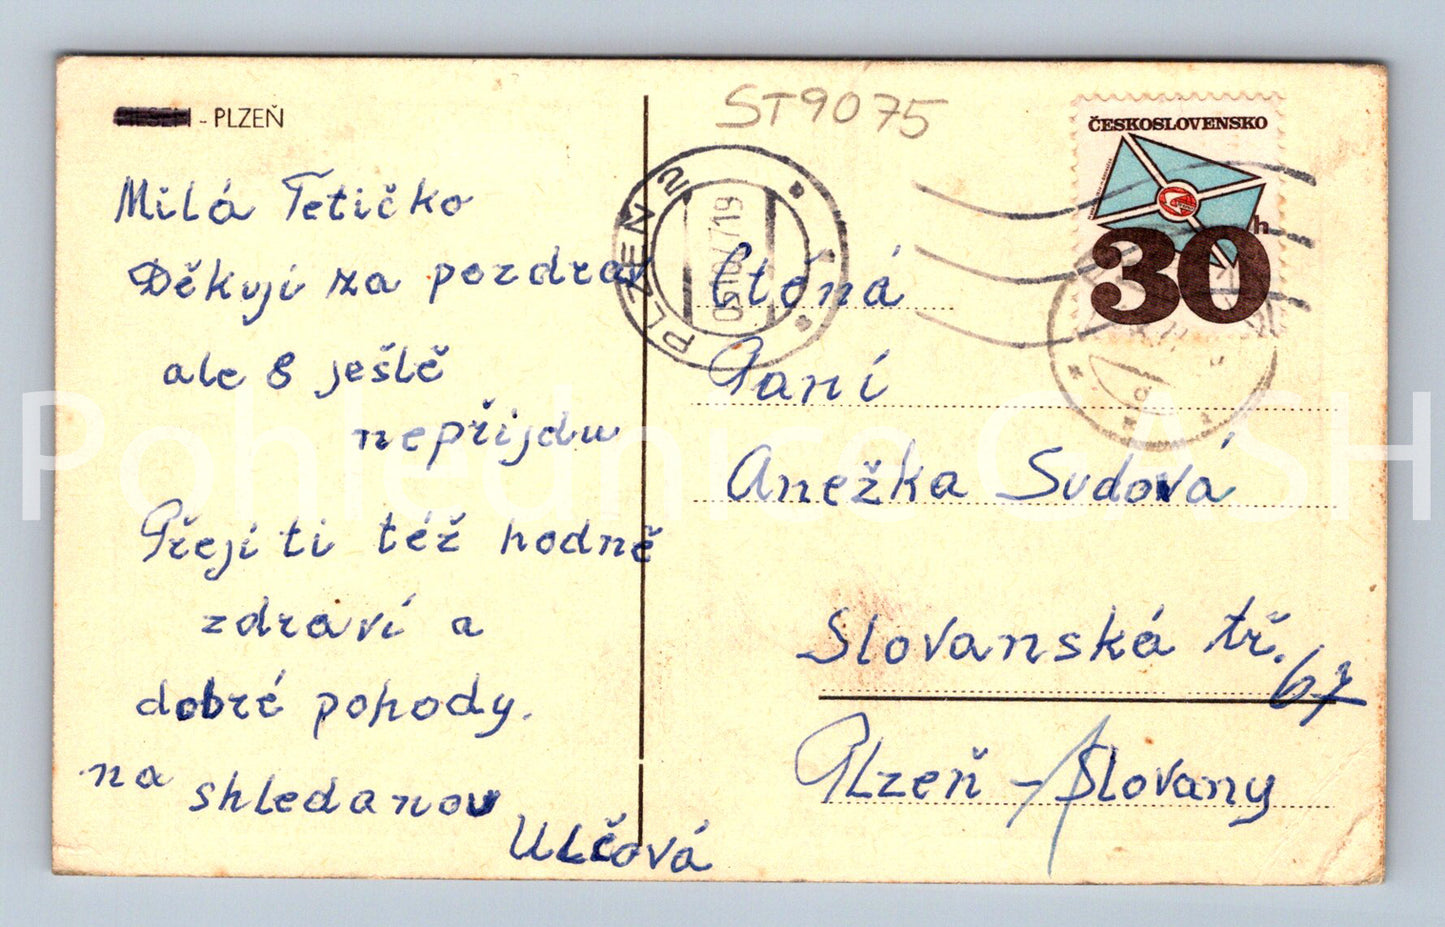 - PLZEŇ
Milá Tetičko
Děkuji za pozdrav
ale 8 ješlě
nepřijdu
Přeji ti též hodně
zdraví a
dobré pohody.
na shledanou
Ulčová
ST9075
PLZEŇ 2
ČESKOSLOVENSKO
30h
Ctěná
Paní
Anežka Sudová
Slovanská tř. 67
Plzeň - Slovany
Pohlednice GASH